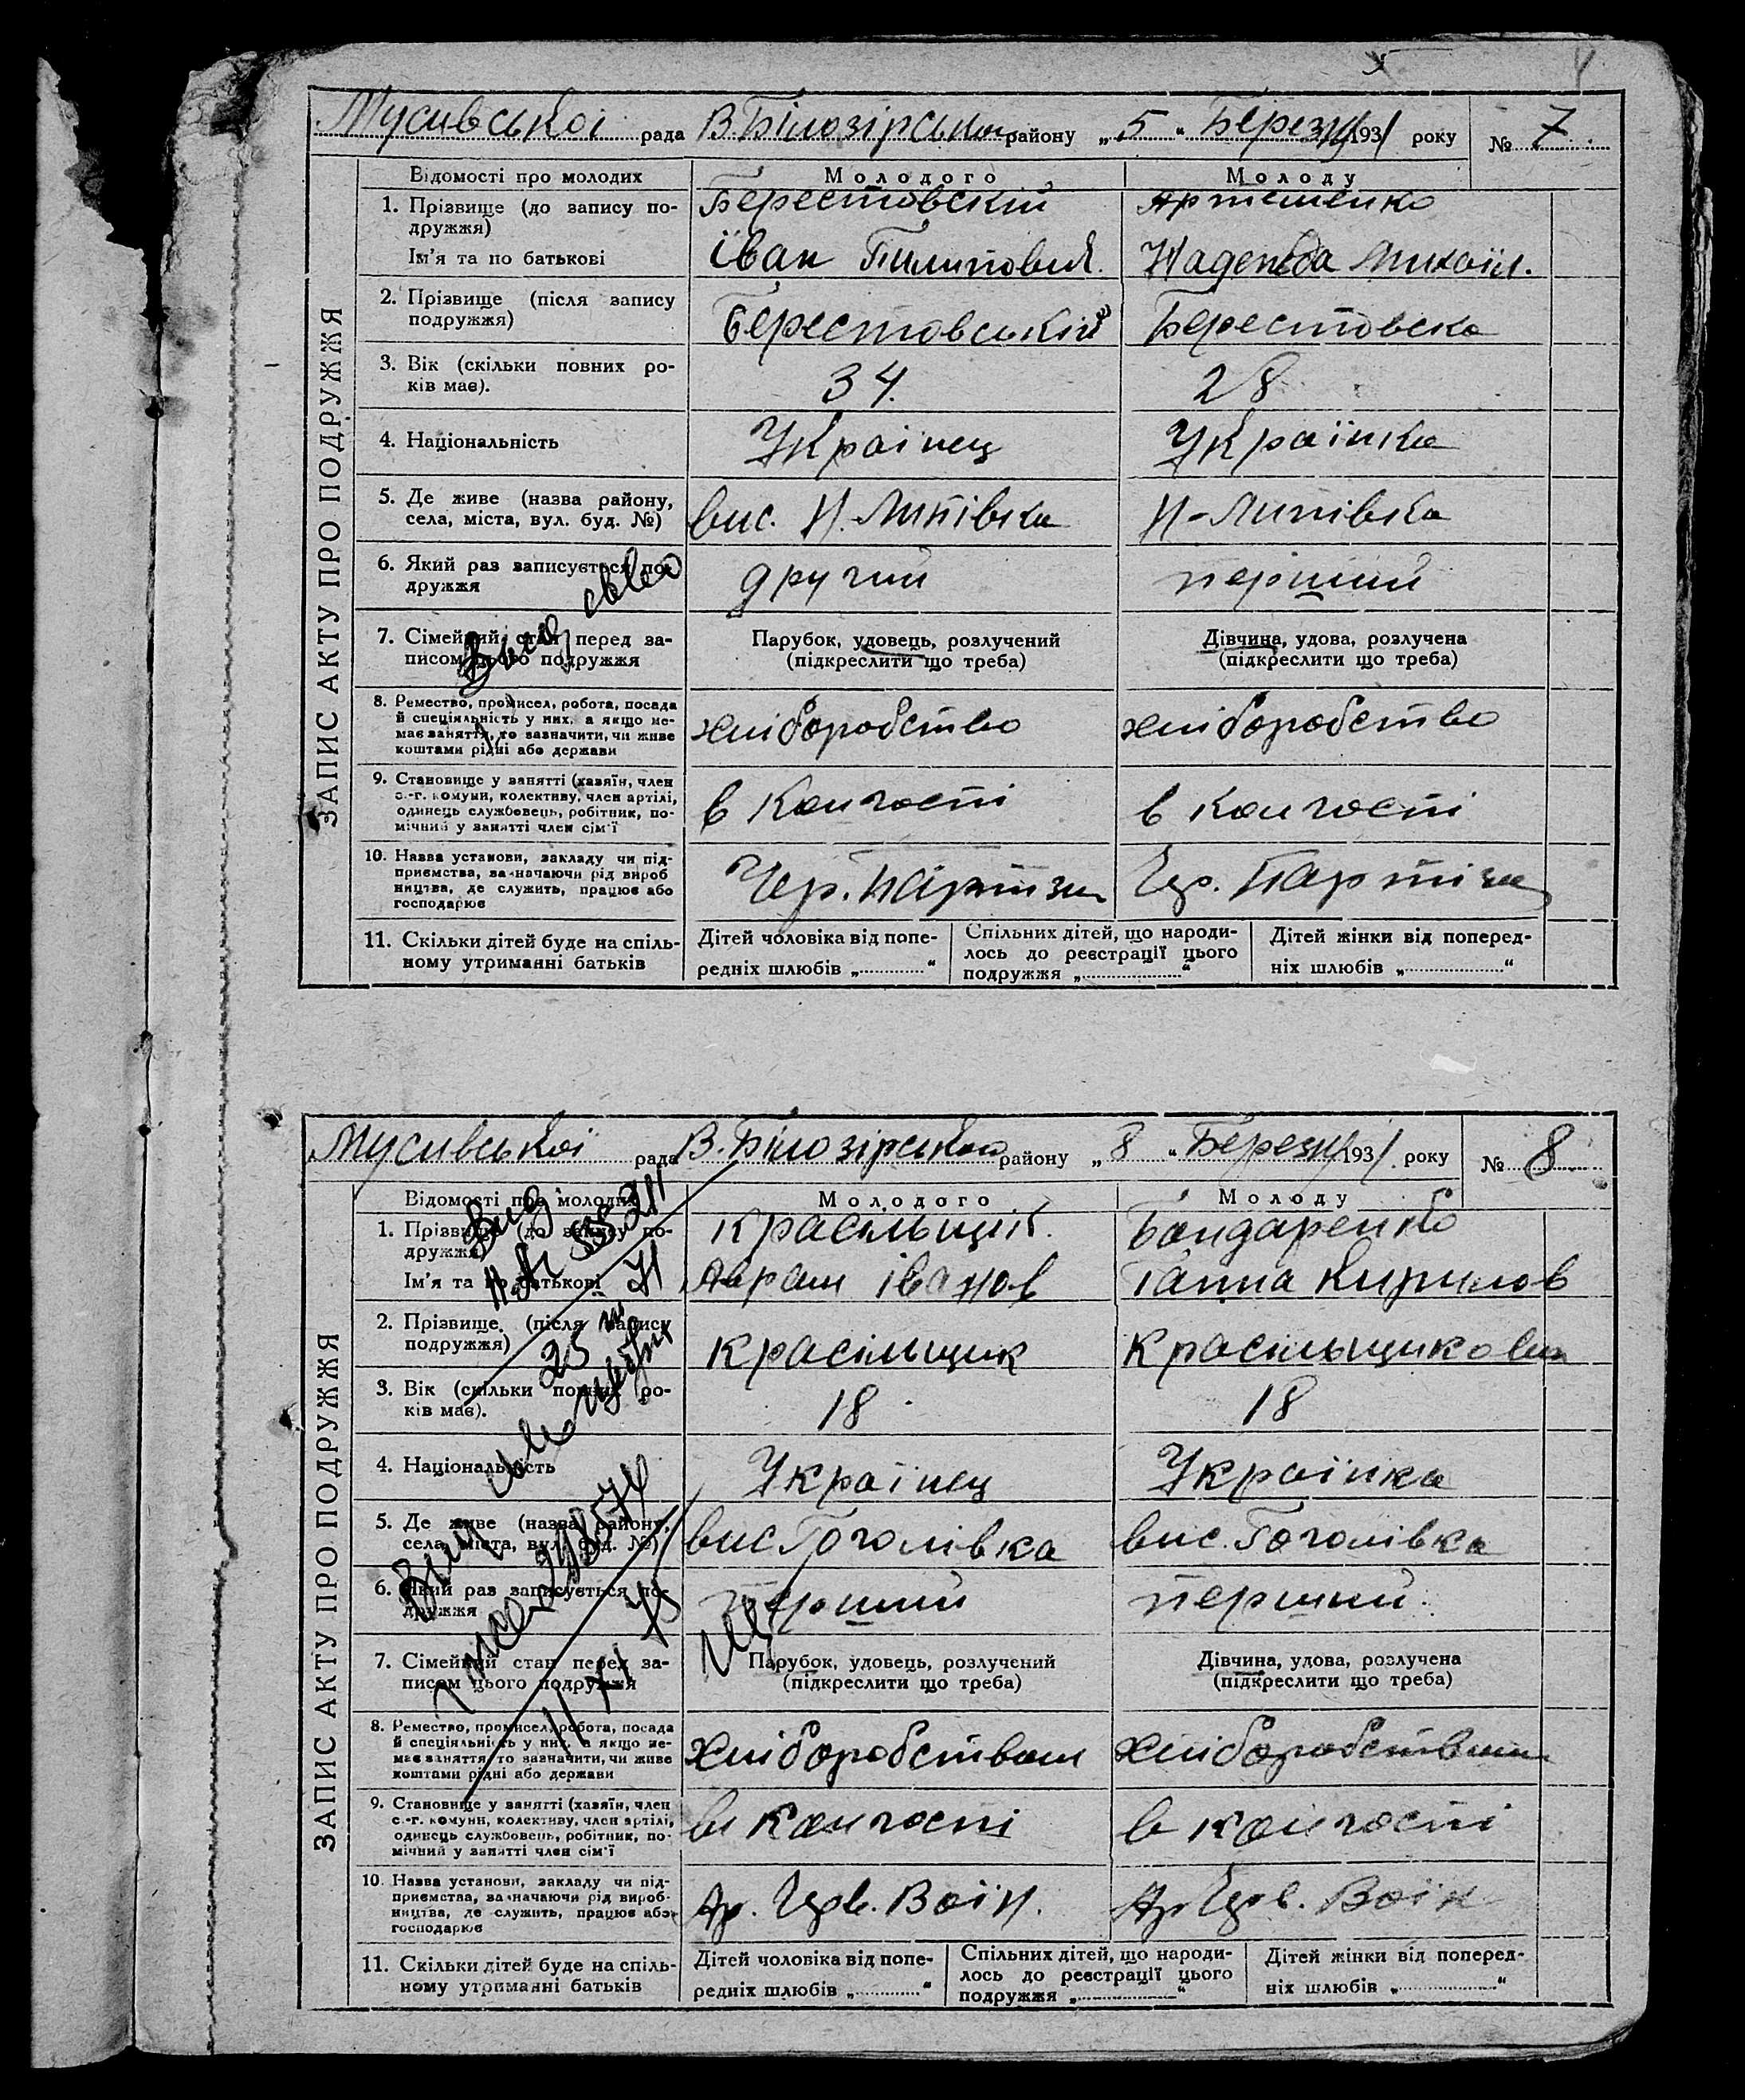 Мусивської рада В.Білозірського району „5" Березня 1931 року № 7
Відомості про молодих Молодого Молоду
1. Прізвище (до запису по- Берестовскій Артеменко
дружжя)
Ім'я та по батькові Іван Пилипович. Надежда Микойл.
2. Прізвище (після запису Берестовський Берестовска
подружжя)
3. Вік (скільки повних ро- 34. 28
ків має).
4. Національність Українец Українка
5. Де живе (назва району, вис. Н. Липівка Н-Липівка
села, міста, вул. буд. №)
6. Який раз записується по- другий перший
дружжя
7. Сімейний стан перед за- Парубок, удовець, розлучений Дівчина, удова, розлучена
писом цього подружжя (підкреслити що треба) (підкреслити що треба)
8. Ремество, промисел, робота, посада хліборобство хліборобство
й спеціяльність у них, а якщо не-
має заняття, то зазначити, чи живе
коштами рідні або держави
9. Становище у занятті (хазяїн, член в колгоспі в колгоспі
с.-г. комуни, колективу, член артілі,
одинець службовець, робітник, по-
мічний у занятті член сім'ї
10. Назва установи, закладу чи під- Чер. Партізан Чер. Партізан
приємства, зазначаючи рід вироб
ництва, де служить, працює або
господарює
11. Скільки дітей буде на спіль- Дітей чоловіка від попе- Спільних дітей, що народи- Дітей жінки від поперед-
ному утриманні батьків редніх шлюбів „ " лось до реєстрації цього ніх шлюбів „ "
подружжя „ "
ЗАПИС АКТУ ПРО ПОДРУЖЖЯ
Мусивської рада В.Білозірського району „8" Березня 1931 року № 8
Відомості про молодих Молодого Молоду
1. Прізвище (до запису по- Красільщік. Бондаренко
дружжя)
Ім'я та по батькові Аврам Іванов Ганна Кирилов
2. Прізвище (після запису Красільщик Красільщикова
подружжя)
3. Вік (скільки повних ро- 18 18
ків має).
4. Національність Українец Українка
5. Де живе (назва району, вис Гоголівка вис. Гоголівка
села, міста, вул. буд. №)
6. Який раз записується по- перший перший
дружжя
7. Сімейний стан перед за- Парубок, удовець, розлучений Дівчина, удова, розлучена
писом цього подружжя (підкреслити що треба) (підкреслити що треба)
8. Ремество, промисел, робота, посада Хліборобством хліборобством
й спеціяльність у них, а якщо не-
має заняття, то зазначити, чи живе
коштами рідні або держави
9. Становище у занятті (хазяїн, член в колгоспі в колгоспі
с.-г. комуни, колективу, член артілі,
одинець службовець, робітник, по-
мічний у занятті член сім'ї
10. Назва установи, закладу чи під- Ар. Черв. Воїн. Ар Черв. Воїн
приємства, зазначаючи рід вироб-
ництва, де служить, працює або
господарює
11. Скільки дітей буде на спіль- Дітей чоловіка від попе- Спільних дітей, що народи- Дітей жінки від поперед-
ному утриманні батьків редніх шлюбів „ " лось до реєстрації цього ніх шлюбів „ "
подружжя „ "
ЗАПИС АКТУ ПРО ПОДРУЖЖЯ